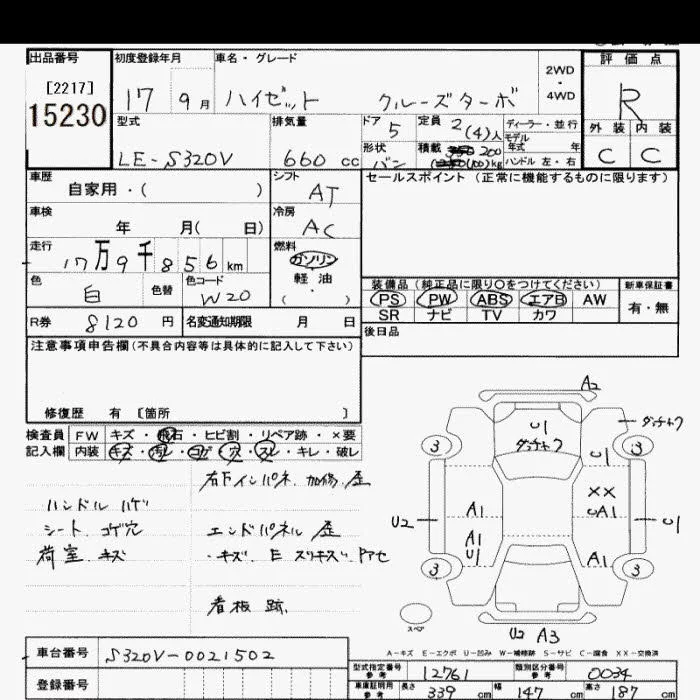 出品番号 初度登録年月 車名・グレード 2WD・4WD 評価点
[2217] 15230 17 9月 ハイゼット クルーズターボ R
型式 排気量 ドア 定員 ディーラー・並行 外装 内装
LE-S320V 660cc 5 2(4)人 モデル年式 年 C C
形状 バン 積載 200 (100)kg ハンドル 左・右
車歴 シフト セールスポイント (正常に機能するものに限ります)
自家用・( ) AT
車検 冷房
年 月( 日) AC
走行 燃料
17万9千856km ガソリン
色 色替 色コード 軽油
白 W20 ( ・ )
装備品 (純正品に限り〇をつけてください) 新車保証書
PS PW ABS エアB AW 有・無
SR ナビ TV カワ
R券 8120円 名変通知期限 月 日 後日品
注意事項申告欄 (不具合内容等は具体的に記入して下さい)
修復歴 有 [箇所 ]
検査員 FW キズ・飛石・ヒビ割・リペア跡・×要
記入欄 内装 キズ・汚レ・コゲ・穴・スレ・キレ・破レ
右下インパネ 加修 歪
ハンドル ハゲ
シート コゲ穴 エンドパネル 歪
荷室 キズ ・キズ E スリキズ Pアセ
看板跡
A2
U1 ダッチャク
ダッチャク
3 U1 3
XX
U2 A1 UA1 U1
A1
U1 A1
3 3
スペア
U2 A3
A-キズ E-エクボ U-凹み W-補修跡 S-サビ C-腐食 XX-交換済
車台番号 S320V-0021502
型式指定番号 参考 12761 類別区分番号 参考 0034
登録番号
車庫証明用 参考 長さ 339cm 幅 147cm 高さ 187cm